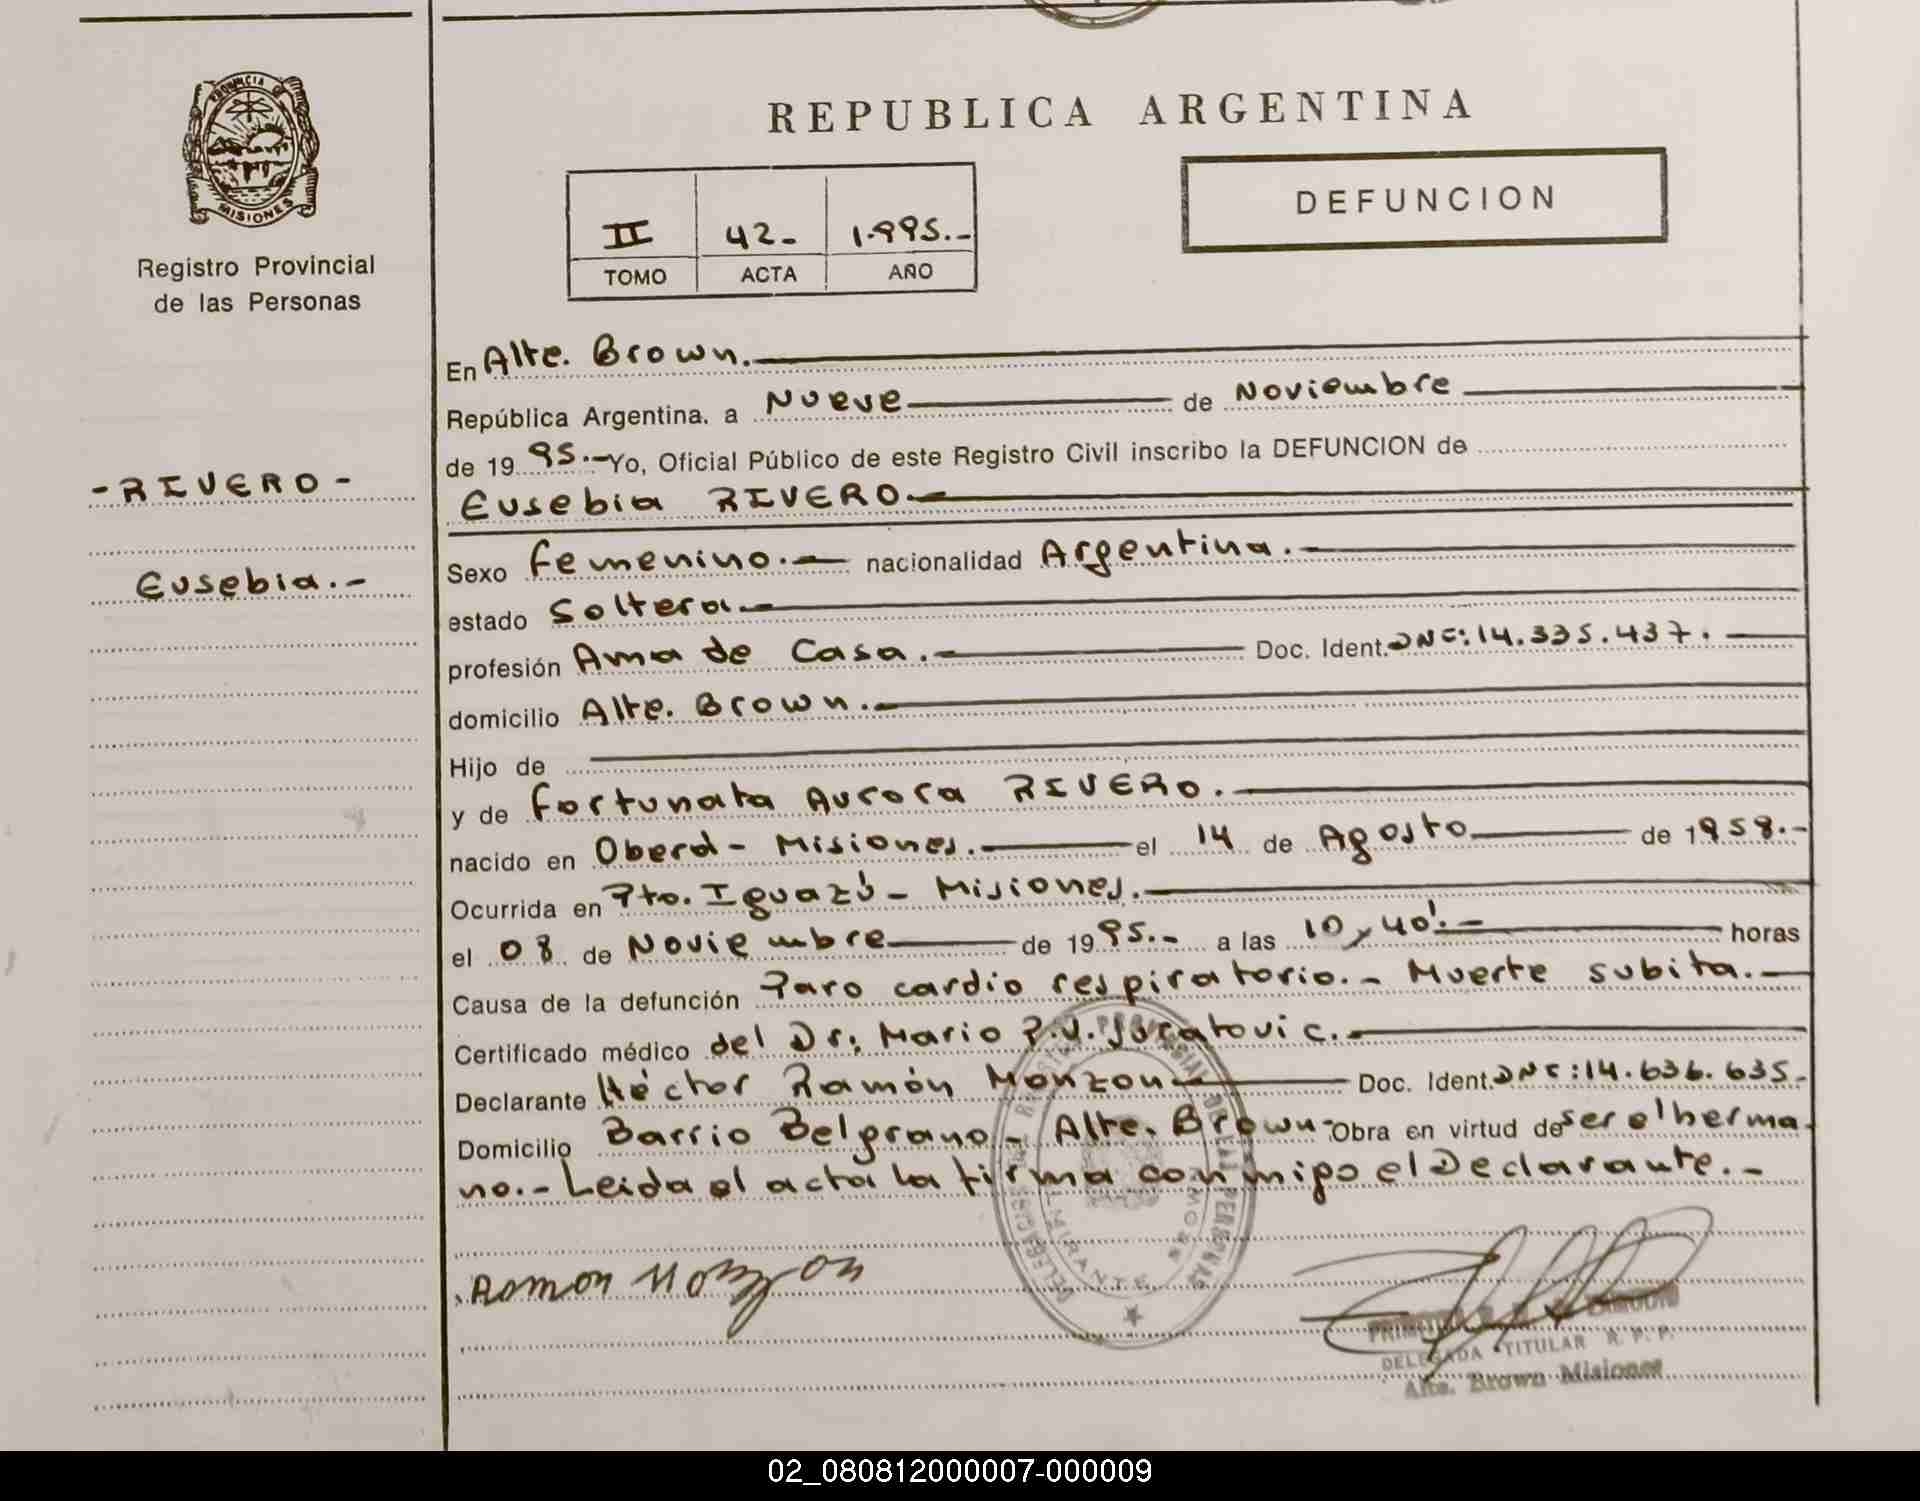 PROVINCIA DE
MISIONES
Registro Provincial
de las Personas
- RIVERO -
Eusebia.-
REPUBLICA ARGENTINA
DEFUNCION
II 42- 1.995.-
TOMO ACTA AÑO
En Alte. Brown.
República Argentina, a Nueve de Noviembre
de 19 95.- Yo, Oficial Público de este Registro Civil inscribo la DEFUNCION de
Eusebia RIVERO.-
Sexo femenino.- nacionalidad Argentina.-
estado Soltera.-
profesión Ama de Casa.- Doc. Ident. DNI: 14.335.437.
domicilio Alte. Brown.-
Hijo de
y de Fortunata Aurora RIVERO.-
nacido en Oberá - Misiones. el 14 de Agosto de 1958.-
Ocurrida en Pto. Iguazú - Misiones.
el 08 de Noviembre de 1995.- a las 10 y 40'.- horas
Causa de la defunción Paro cardio respiratorio.- Muerte subita.-
Certificado médico del Dr. Mario P.V. Juratovic.-
Declarante Héctor Ramón Monzon Doc. Ident. DNI: 14.636.635.-
Domicilio Barrio Belgrano - Alte. Brown- Obra en virtud de ser el herma-
no.- Leida el acta la firma conmigo el Declarante.-
Ramon Monzon
ALMIRANTE BROWN
DELEGADA TITULAR R. P. P.
Alte. Brown Misiones
02_080812000007-000009